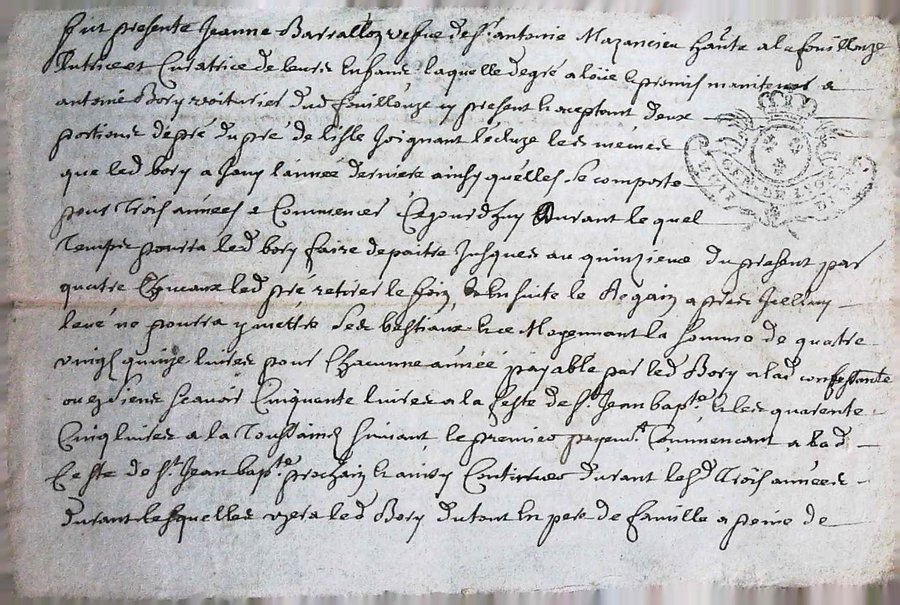 fut presente Jeanne Barrallon vefve de Sr antoine Mazancieu hante a la fouillouze
tutrice et Curatrice de leurs Enfans laquelle de gré a loüé & promis maintenir a
antoine Bory voiturier dud fouillouze y present & acceptant deux
portions de pré du pré de lisle Joignant lecluze les mêmes
que led bory a Jouy l'année derniere ainsy quelles se comporte
pour Trois années a Commencer Ce jourdhuy durant le quel
Temps pourra led bory faire depaitre Jusques au quinzieme du present par
quatre Chevaux led pré retirer le foin, & En suite le Regain apres Jcelluy
levé ne pourra y mettre ses bestiaux & ce Moyennant la somme de quatre
vingt quinze livres pour Chacunne année payable par led Bory a lad confessante
ou ez siens scavoir Cinquante livres a la feste de St Jean bapte & les quarente
Cinq livres a la Toussaincs suivant le premier payemt Commencant a lad
feste de St Jean bapte prochain & ainsy Continuer durant lesd Trois années
durant lesquelles uzera led Bory du tout En pere de famille a peine de